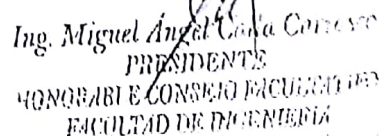 Ing. Miguel Ángel
PRESIDENTE
HONORABLE CONSEJO FACULTATIVO
FACULTAD DE INGENIERÍA